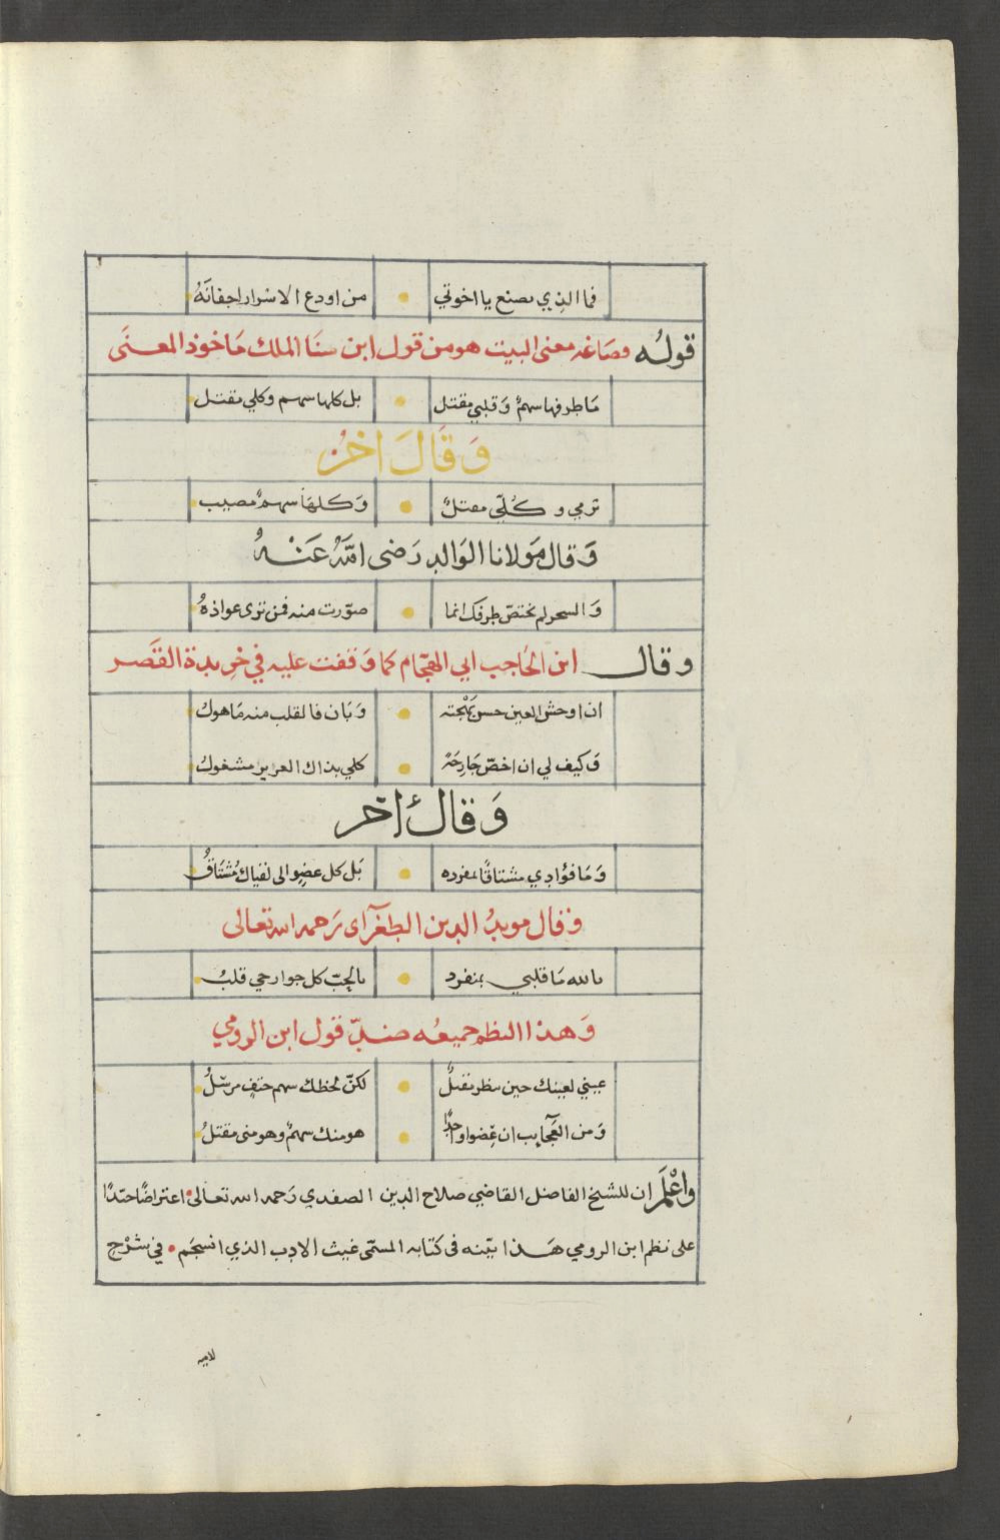 فما الذي يصنع يا اخوتي • من اودع الاسرار اجفانَهُ
قولُه وصَاغه معنى البيت هو من قول ابن سنَا الملك مَاخوذ المعنَى
مَا طرفها سهمٌ وَقلبي مقتل • بل كلها سهم وكلي مقتل
وَقَالَ اخرُ
ترمي و كُلّي مقتلٌ • وَكلهَا سهمٌ مصيب
وَقال مَولانا الوَالد رَضى اللهُ عَنْهُ
وَالسحر لم يختصّ طرفك انما • صوّرت منه فمن ترى عواذهُ
وقال ابن الحَاجب ابي الهجّام كما وَقفت عليه في خرِيدة القَصر
ان اوحش العين حسن بَهْجته • وَبَان فالقلب منه مَاهولُ
وَكيف لي ان اخصّ جَارِحَة • كلي بذاك العزيز مشغولُ
وَقالَ اخر
وَمَا فؤادِي مشتاقًا بمفرده • بَل كل عضوٍ الى لقياك مُشتَاقُ
وَقال مويدُ الدين الطغرآى رَحمه الله تعالى
بالله مَا قلبي بمنفرد • بالحِبّ كل جوارحي قلبُ
وَهذا النظم جميعُه ضدّ قول ابن الرومي
عيني لعينك حين تنظر مقتلٌ • لكنّ لحظك سهم حتفٍ مرسَلُ
وَمن العَجَآيب ان عضوا واحدًا • هو منك سهمٌ وهو منى مقتلُ
واعْلَم ان للشيخ الفاضل القاضي صلاح الدين الصفدي رَحمه الله تعالى • اعتراضًا حسَنًا
على نظم ابن الرومي هَذا بيّنه فى كتابه المسمّى غيث الادب الذي انسجَم • في شرْح
لامية